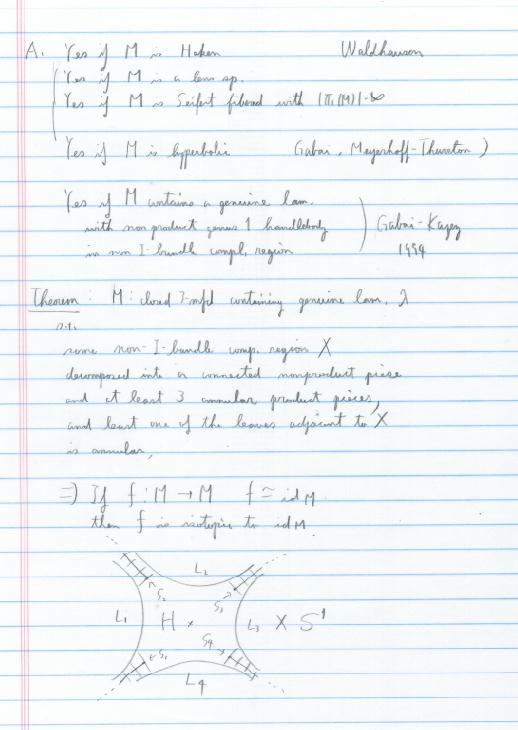 A. Yes if M is Haken Waldhausen
Yes if M is a lens sp.
Yes if M is Seifert fibered with |π₁(M)|=∞
Yes if M is hyperbolic Gabai, Meyerhoff-Thurston )
Yes if M contains a genuine lam.
with non product genus 1 handlebody
in non I-bundle compl. region
) Gabai-Kazez
1994
Theorem : M: closed 3-mfd containing genuine lam. λ
s.t.
some non-I-bundle comp. region X
decomposed into a connected nonproduct piece
and at least 3 annular product pieces,
and least one of the leaves adjacent to X
is annular,
⇒) If f: M → M f ≃ id M
then f is isotopic to id M
L₂
S₂ S₃
L₁ H × L₃ × S¹
S₁ S₄
L₄